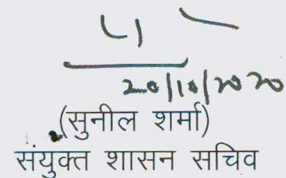 20/10/2020
(सुनील शर्मा)
संयुक्त शासन सचिव